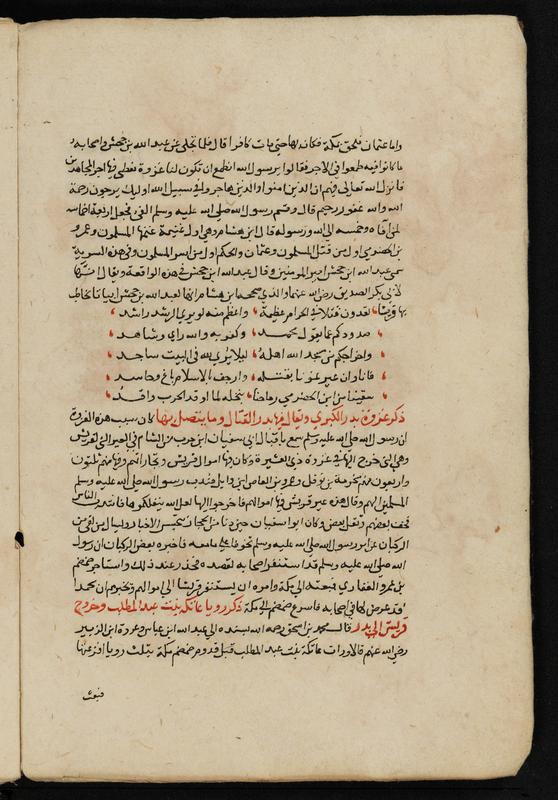 واما عثمان فلحق بمكة فكان بها حتى مات كافرا قال فلما تجلى عن عبد الله بن جحش واصحابه
ما كانوا فيه طمعوا في الاجر فقالوا يرسول الله انطمع ان تكون لنا غزوة نعطى فيها اجر المجاهدين
فانزل الله تعالى فيهم ان الذين امنوا والذين هاجروا في سبيل الله اوليك يرجون رحمة
الله والله غفور رحيم قال وقسم رسول الله صلى الله عليه وسلم الفي فجعل اربعة اخماسه
لمن افاه وخمسه الى الله ورسوله قال ابن هشام وهي اول غنيمة غنمها المسلمون وعمرو
بن الحضرمي اول من قتل المسلمون وعثمان والحكم اول من اسر المسلمون وفي هذه السرية
سمي عبد الله ابن جحش امير المومنين وقال عبد الله ابن جحش في هذه الواقعة ويقال انها
لابي بكر الصديق رضي الله عنهما والذي صححه ابن هشام انها لعبد الله بن جحش ابياتا يخاطب
بها قريشا تعدون قتلا في الحرام عظيمة واعظم منه لو يرى الرشد راشد
صدودكم عما يقول محمد وكفر به والله راي وشاهد
واخراجكم من مسجد الله اهله ليلا يرى لله في البيت ساجد
فانا وان عيرتمونا بقتله وارجف بالاسلام باغ وحاسد
سقينا من ابن الحضرمي رماحنا بنخلة لما اوقد الحرب واقد
ذكر غزوة بدر الكبرى ويقال فيها بدر القتال وما يتصل بها كان سبب هذه الغزوة
ان رسول الله صلى الله عليه وسلم سمع باقبال ابي سفيان ابن حرب من الشام في العير التي لقريش
وهي التي خرج اليها في غزوة ذي العشيرة وكان فيها اموال قريش وتجاراتهم وفيها منهم ثلثون
واربعون منهم مخرمة بن نوفل وعمرو بن العاص ابن وايل فندب رسول الله صلى الله عليه وسلم
المسلمين اليهم وقال هذه عير قريش فيها اموالهم فاخرجوا اليها لعل الله ينفلكموها فانتدب الناس
فخف بعضهم وثقل بعض وكان ابو سفيان حين دنا من الحجاز يتحسس الاخبار ويسال من لقي من
الركبان عن امر رسول الله صلى الله عليه وسلم تخوفا على ما معه فاخبره بعض الركبان ان رسول
الله صلى الله عليه وسلم قد استنفر اصحابه لقصده فحذر عند ذلك واستاجر ضمضم
بن عمرو الغفاري فبعثه الى مكة وامره ان يستنفر قريشا الى اموالهم ويخبرهم ان محمدا
قد عرض لها في اصحابه فاسرع ضمضم الى مكة ذكر رويا عاتكة بنت عبد المطلب وخروج
قريش الى بدر قال محمد بن اسحق رحمه الله بسنده الى عبد الله ابن عباس وعروة ابن الزبير
رضي الله عنهم قالا ورات عاتكة بنت عبد المطلب قبل قدوم ضمضم مكة بثلث رويا افزعتها